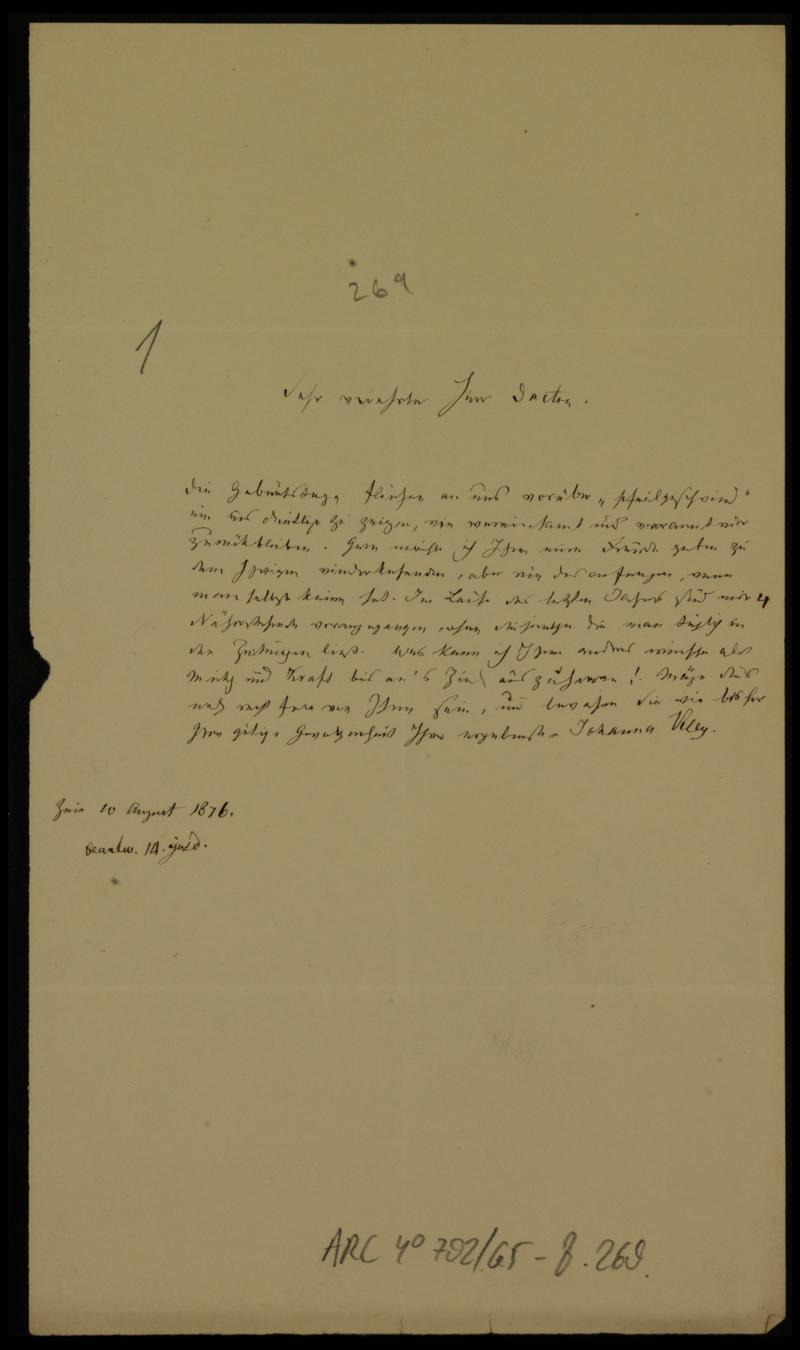 269
1
Sehr verehrter Herr Doctor.
Die Geburtstage fliehen an uns vorüber „pfeilgeschwind“
um uns deutlich zu zeigen, wie vereinsamt und verarmt wir
zurückbleiben. Gern möchte ich Ihnen eine Freude geben zu
dem Ihrigen wiederkehrenden, aber wie das anfangen, wenn
man selbst keine hat. Im Laufe des letzten Jahres sind mir 4
Näherstehende vorangegangen, ohne diejenigen die man täglich in
den Zeitungen liest. Was kann ich Ihnen anders wünschen als
Muth und Kraft bis an's Ziel auszuharren! Möge dies
noch recht fern von Ihnen sein, und bewahren Sie wie bisher
Ihre gütige Gewogenheit Ihrer ergebensten Johanna
10 August 1876.
beantw. 14.
ARC 4° 792/G5 - 8. 269.